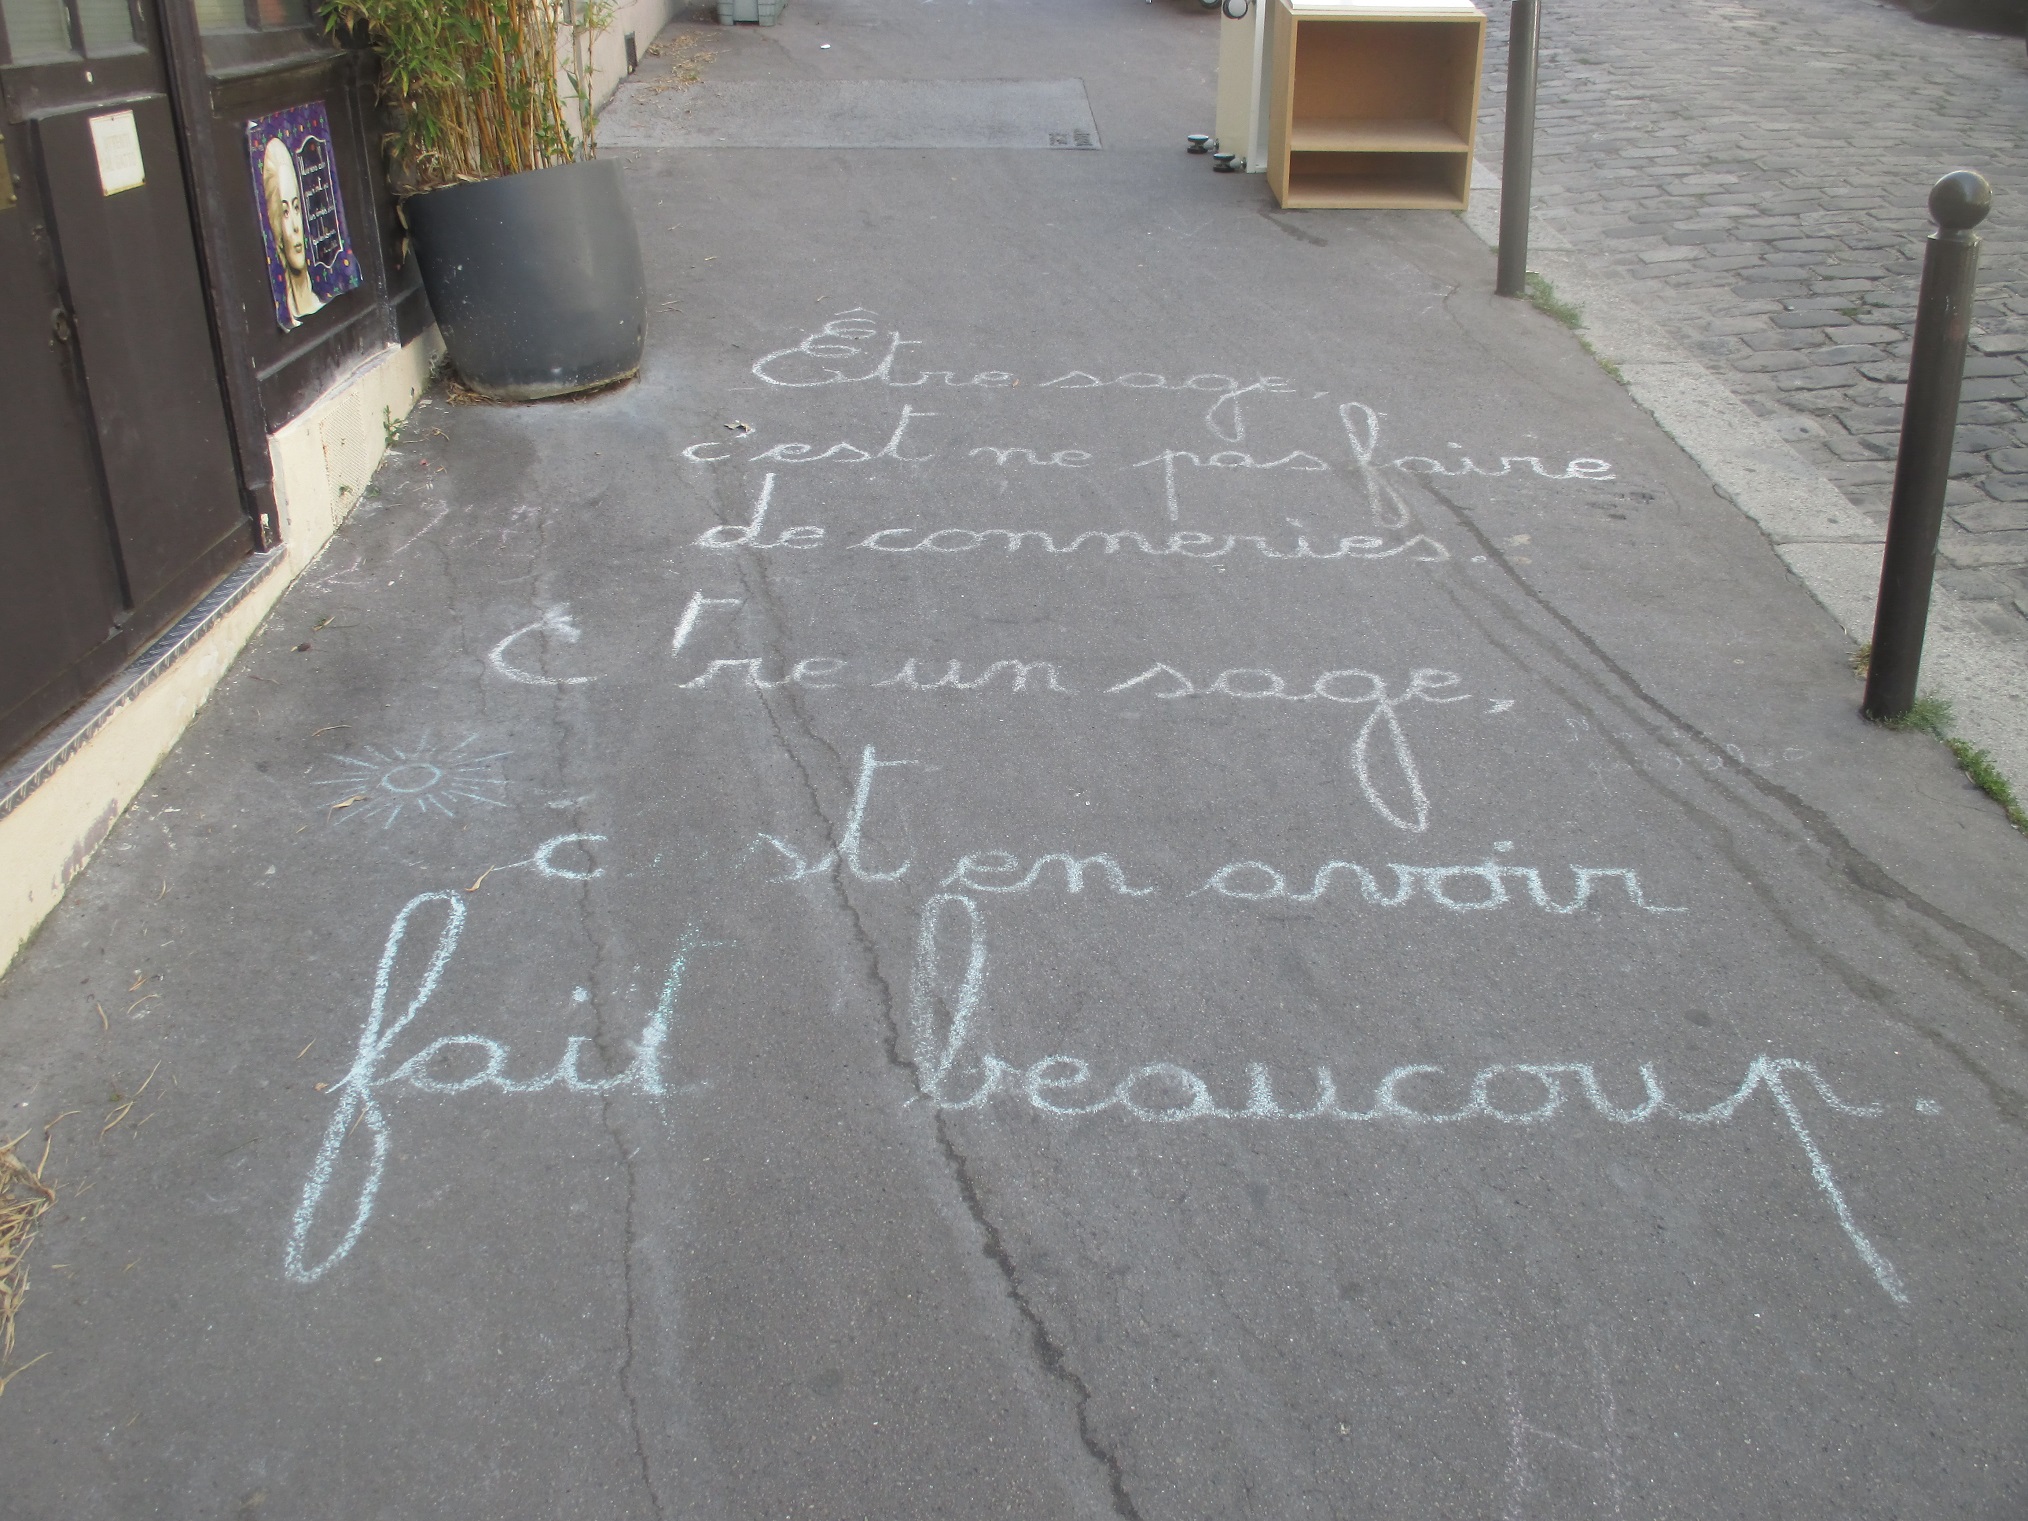 Être sage,
c'est ne pas faire
de conneries.
Être un sage,
c'est en avoir
fait beaucoup.